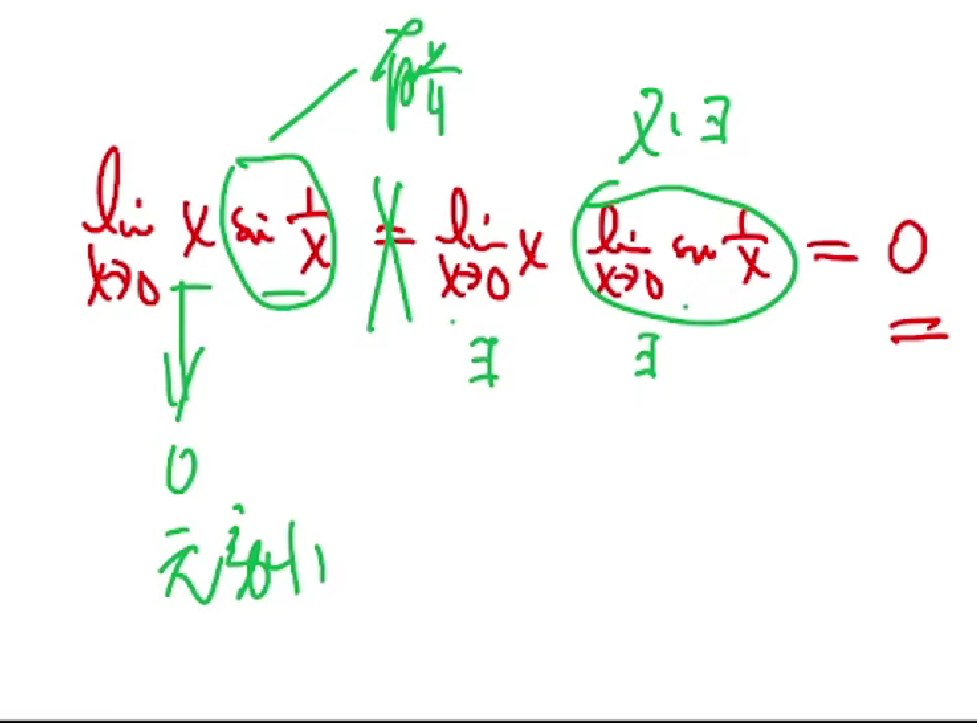 有界
不·∃
lim x→0 x sin 1/x = lim x→0 x lim x→0 sin 1/x = 0
∃ ∃
0
无穷小